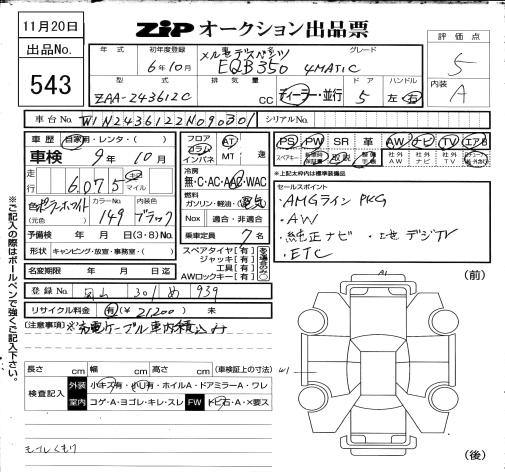 11月20日
ZiP オークション出品票
出品No.
543
年式 初年度登録 グレード
6年10月 メルセデスベンツ EQB350 4MATIC
型式 排気量 ドア ハンドル
ZAA-243612C CC ディーラー・並行 5 左・右
評価点
5
内装
A
車台No. W1N2436122N090301 シリアルNo.
車歴 自家用・レンタ・( )
車検 9年10月
走行 6,075 キロ マイル
色 ポーラーホワイト (元色) カラーNo. 149 内装色 ブラック
予備検 年 月 日 (3・8) No.
形状 キャンピング・放宣・事務室・( )
名変期限 年 月 日迄
フロア コラム インパネ AT MT 速
冷房 無・C・AC・AAC・WAC
燃料 ガソリン・軽油・(電気)
Nox 適合・非適合
乗車定員 7名
スペアタイヤ【有】
ジャッキ【有】
工具【有】
AWロックキー【有】
PS PW SR 革 AW ナビ TV エアB
スペアキー 取説 社外AW 社外ナビ
▲上記太枠内は標準装備品
セールスポイント
・AMGライン PKG
・AW
・純正ナビ ・地デジTV
・ETC
登録No. 岡山 301 め 939
リサイクル料金 有(¥21200) 未
(注意事項) ※充電ケーブル車内積込み
長さ cm 幅 cm 高さ cm (車検証上の寸法)
検査記入 外装 小キズ有・小U有・ホイルA・ドアミラーA・ワレ
室内 コゲA・ヨゴレ・キレ・スレ FW トビ石・A・×要ス
モールくもり
ご記入の際はボールペンで強くご記入下さい。
(前)
A1
W1
(後)